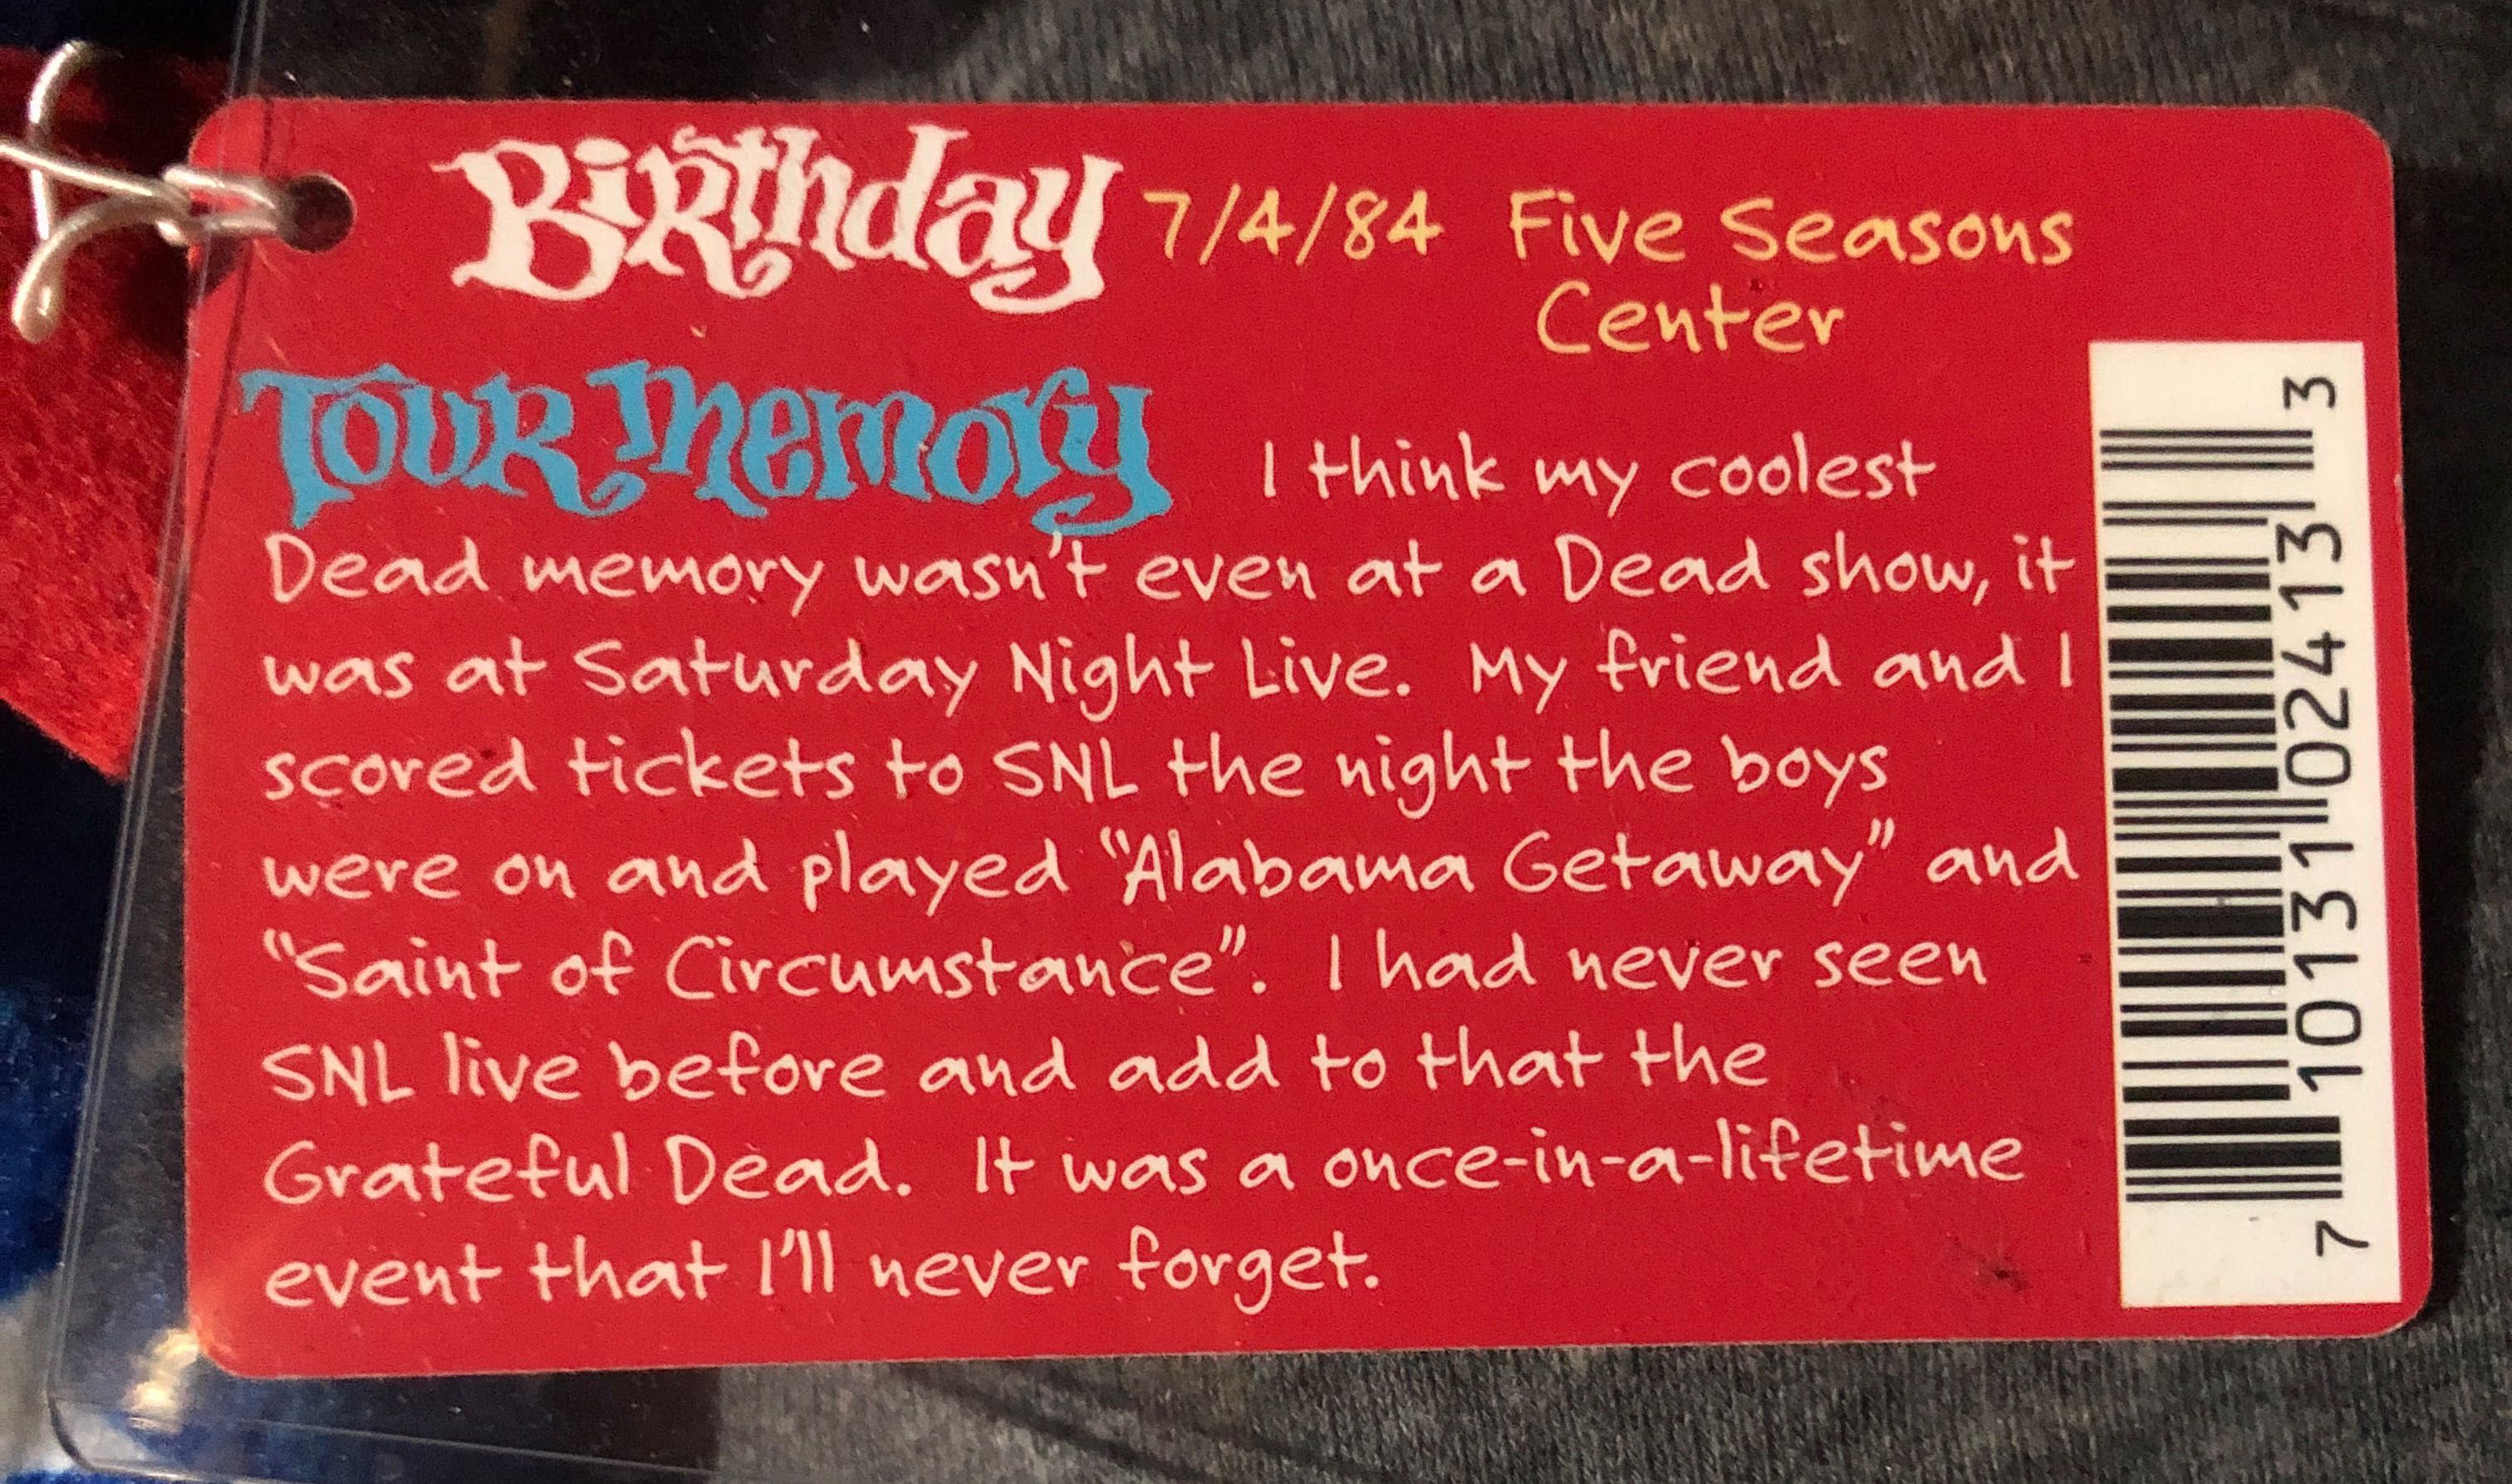 Birthday 7/4/84 Five Seasons
Center
Tour Memory I think my coolest
Dead memory wasn't even at a Dead show, it
was at Saturday Night Live. My friend and I
scored tickets to SNL the night the boys
were on and played "Alabama Getaway" and
"Saint of Circumstance". I had never seen
SNL live before and add to that the
Grateful Dead. It was a once-in-a-lifetime
event that I'll never forget.
7 10131 02413 3